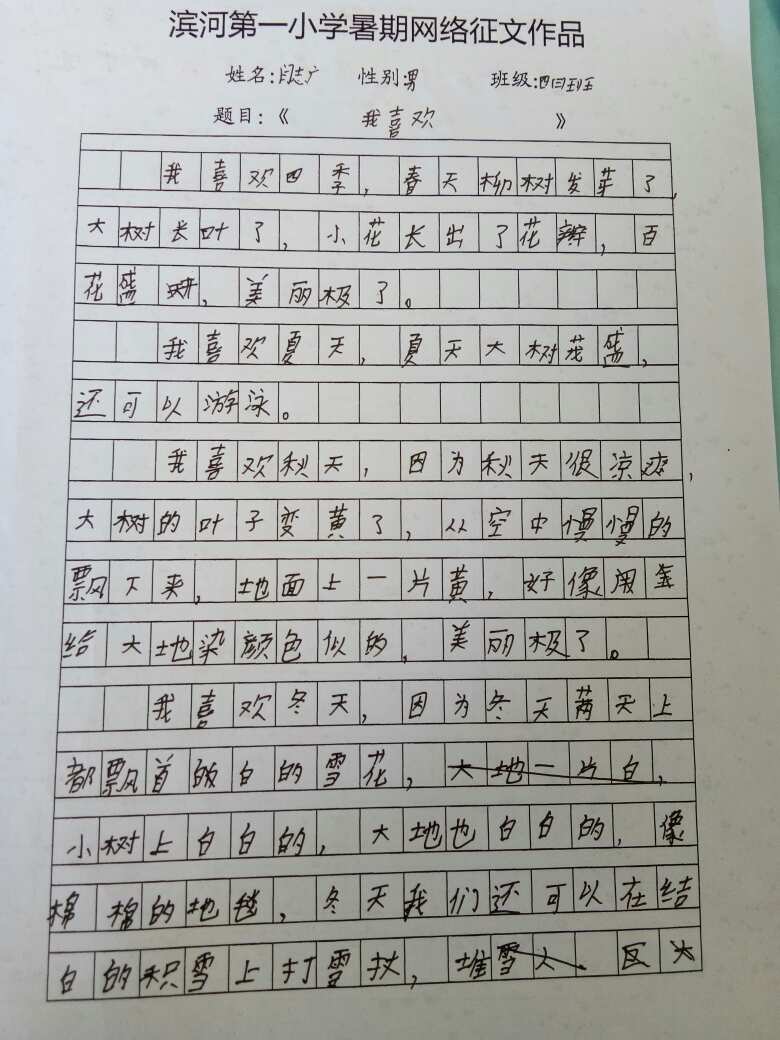 滨河第一小学暑期网络征文作品
姓名:闫志广 性别:男 班级:四(三)班
题目:《 我喜欢 》
我喜欢四季,春天柳树发芽了,
大树长叶了,小花长出了花辨,百
花盛开,美丽极了。
我喜欢夏天,夏天大树茂盛,
还可以游泳。
我喜欢秋天,因为秋天很凉爽,
大树的叶子变黄了,从空中慢慢的
飘下来,地面上一片黄,好像用金
给大地染颜色似的,美丽极了。
我喜欢冬天,因为冬天天上
都飘首的白的雪花,大地一片白,
小树上白白的,大地也白白的,像
棉棉的地毯,冬天我们还可以在结
白的积雪上打雪扙,堆雪人